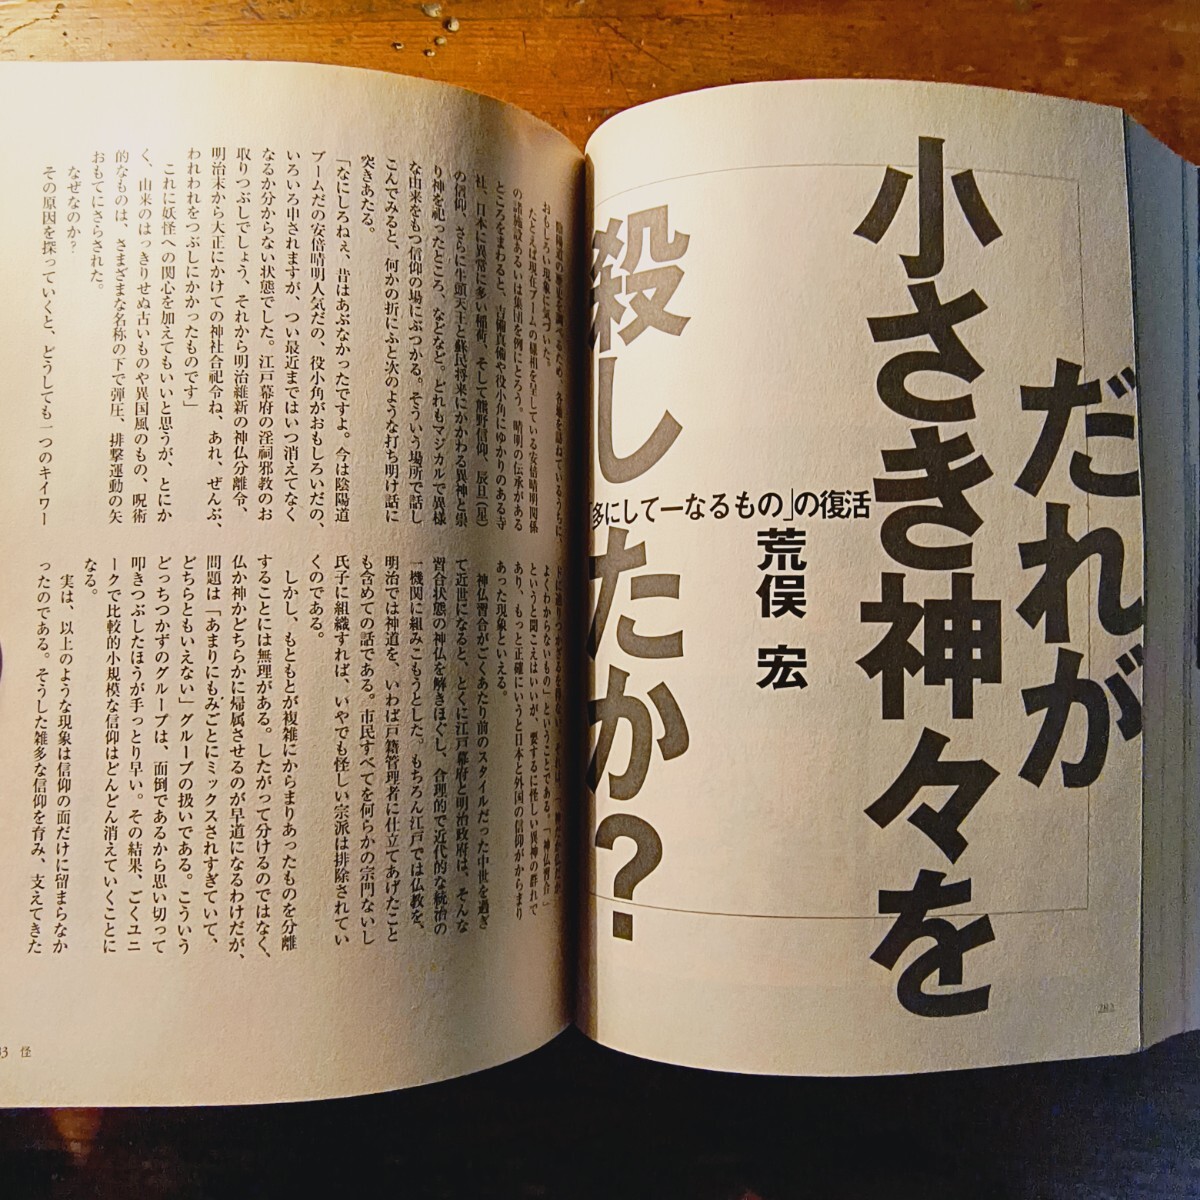 だれが
小さき神々を
殺したか?
多にして一なるもの」の復活
荒俣 宏
282
おもしろい現象に気づいた。
たとえば現在ブームの様相を呈している安倍晴明関係
の諸施設あるいは集団を例にとろう。晴明の伝承がある
ところをまわると、吉備真備や役小角にゆかりのある寺
社、日本に異常に多い稲荷、そして熊野信仰、辰旦(星)
の信仰、さらに牛頭天王と蘇民将来にかかわる異神と祟
り神を祀ったところ、などなど。どれもマジカルで異様
な由来をもつ信仰の場にぶつかる。そういう場所で話し
こんでみると、何かの折にふと次のような打ち明け話に
突きあたる。
「なにしろねぇ、昔はあぶなかったですよ。今は陰陽道
ブームだの安倍晴明人気だの、役小角がおもしろいだの、
いろいろ申されますが、つい最近まではいつ消えてなく
なるか分からない状態でした。江戸幕府の淫祠邪教のお
取りつぶしでしょう、それから明治維新の神仏分離令、
明治末から大正にかけての神社合祀令ね、あれ、ぜんぶ、
われわれをつぶしにかかったものです」
これに妖怪への関心を加えてもいいと思うが、とにか
く、由来のはっきりせぬ古いものや異国風のもの、呪術
的なものは、さまざまな名称の下で弾圧、排撃運動の矢
おもてにさらされた。
なぜなのか?
その原因を探っていくと、どうしても一つのキイワー
よくわからないもの」ということである。「神仏習合」
というと聞こえはいいが、要するに怪しい異神の群れで
あり、もっと正確にいうと日本と外国の信仰がからまり
あった現象といえる。
神仏習合がごくあたり前のスタイルだった中世を過ぎ
て近世になると、とくに江戸幕府と明治政府は、そんな
習合状態の神仏を解きほぐし、合理的で近代的な統治の
一機関に組みこもうとした。もちろん江戸では仏教を、
明治では神道を、いわば戸籍管理者に仕立てあげたこと
も含めての話である。市民すべてを何らかの宗門ないし
氏子に組織すれば、いやでも怪しい宗派は排除されてい
くのである。
しかし、もともとが複雑にからまりあったものを分離
することには無理がある。したがって分けるのではなく、
仏か神かどちらかに帰属させるのが早道になるわけだが、
問題は「あまりにもみごとにミックスされすぎていて、
どちらともいえない」グループの扱いである。こういう
どっちつかずのグループは、面倒であるから思い切って
叩きつぶしたほうが手っとり早い。その結果、ごくユニ
ークで比較的小規模な信仰はどんどん消えていくことに
なる。
実は、以上のような現象は信仰の面だけに留まらなか
ったのである。そうした雑多な信仰を育み、支えてきた
怪